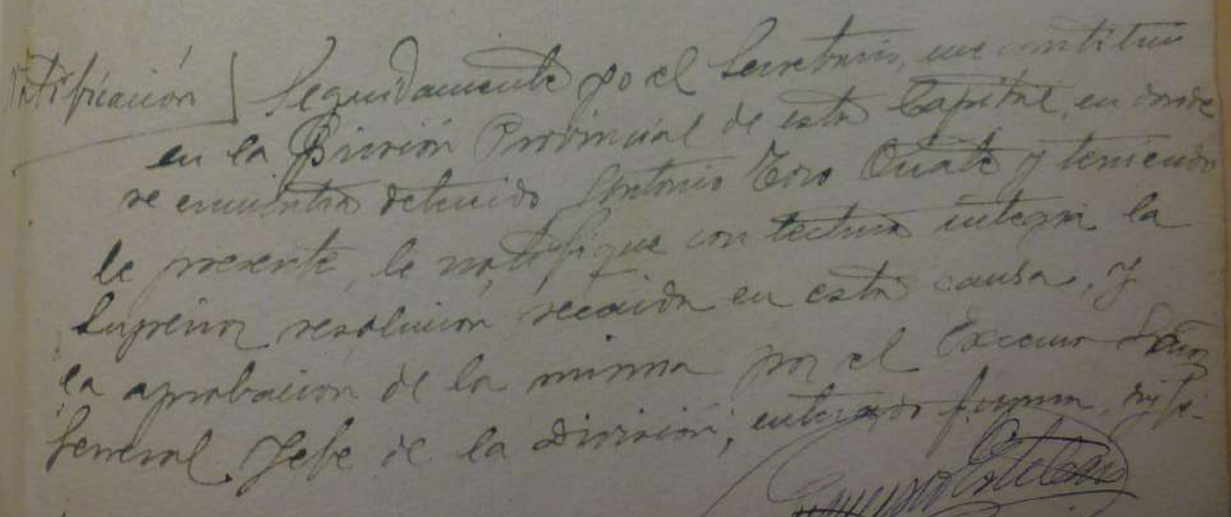 Notificación] Seguidamente yo el Secretario, me constitui
en la Prisión Provincial de esta Capital, en donde
se encuentra detenido Antonio Toro Oñate y teniendo
le presente, le notifique con lectura integra la
Superior resolución recaida en esta causa, y
la aprobacion de la misma por el Excmo Señor
General Jefe de la División; enterado firma, doy fe.
Esteban